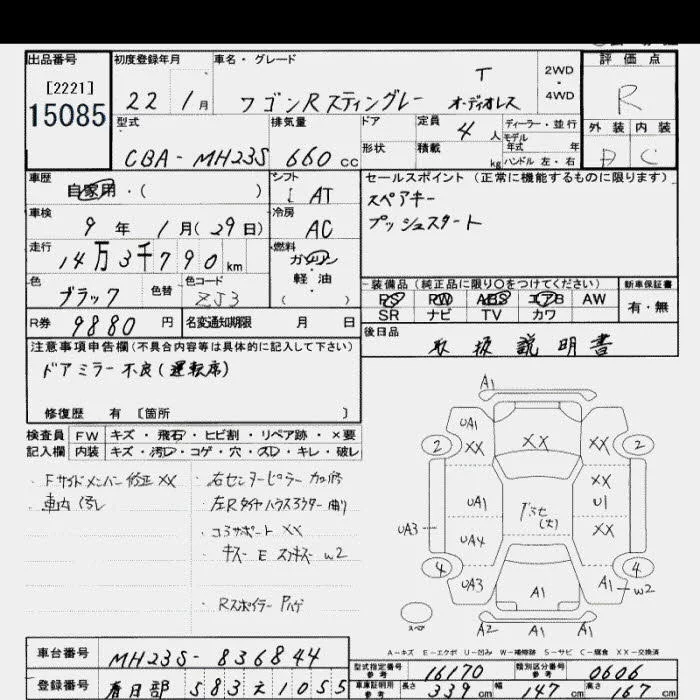 出品番号
[2221]
15085
初度登録年月
22 1月
車名・グレード
ワゴンRスティングレー T オーディオレス
2WD
・
4WD
評価点
R
型式
CBA-MH23S
排気量
660cc
ドア
形状
定員
4人
積載
kg
ディーラー・並行
モデル
年式 年
ハンドル 左・右
外装 内装
C
車歴
自家用・( )
シフト
AT
セールスポイント(正常に機能するものに限ります)
スペアキー
プッシュスタート
車検
9年 1月(29日)
冷房
AC
走行
14万3千790km
燃料
ガソリン
・
軽油
( )
色
ブラック
色替
色コード
ZJ3
装備品(純正品に限り○をつけてください)
PS PW ABS エアB AW
SR ナビ TV カワ
新車保証書
有・無
R券
9880円
名変通知期限 月 日
後日品
取扱説明書
注意事項申告欄(不具合内容等は具体的に記入して下さい)
ドアミラー不良(運転席)
修復歴 有 [箇所 ]
検査員 FW キズ・飛石・ヒビ割・リペア跡・×要
記入欄 内装 キズ・汚レ・コゲ・穴・スレ・キレ・破レ
・Fサイドメンバー修正XX
・車内汚レ
・右センターピラー
・左Rタイヤハウスアウター曲り
・コアサポートXX
・キズ E スリキズ W2
・Rスポイラー
A1
UA1
XX
XX
XX
2
2
XX
UA1
U1
UA3
UA4
XX
4
4
UA3
A1
A1
W2
スペア
A2
A1
A1
A-キズ E-エクボ U-凹み W-補修跡 S-サビ C-腐食 XX-交換済
車台番号
MH23S-836844
型式指定番号
参考
16170
類別区分番号
参考
0606
登録番号
春日部 583 え 1055
車庫証明用
参考
長さ 339cm
幅 147cm
高さ 167cm